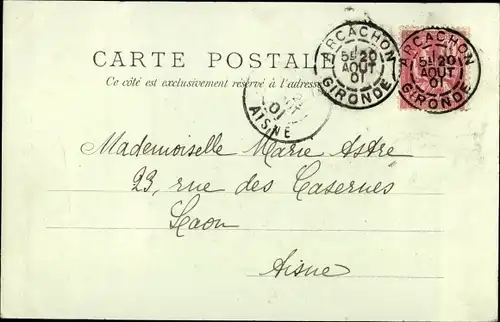 CARTE POSTALE
Ce côté est exclusivement réservé à l'adresse
ARCACHON
5E 20
AOUT
01
GIRONDE
ARCACHON
5E 20
AOUT
01
GIRONDE
01
AISNE
Mademoiselle Marie Astre
23, rue des Casernes
Laon
Aisne